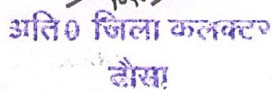 अति0 जिला कलक्टर
दौसा